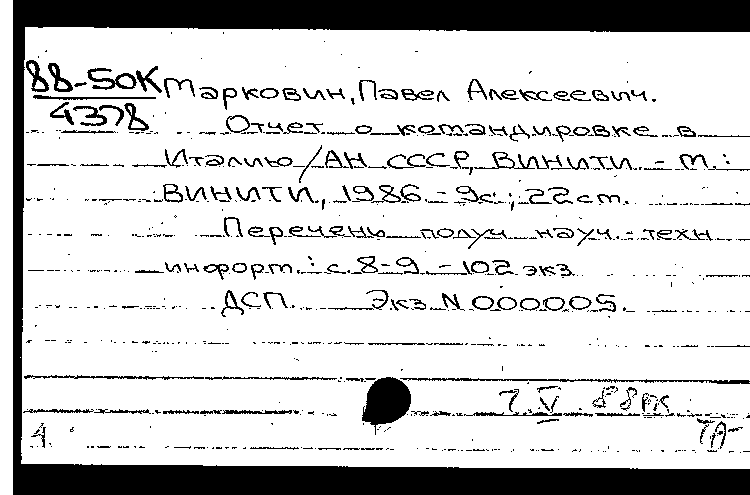 88-50К Марковин, Павел Алексеевич.
4378
Отчет о командировке в
Италию / АН СССР, ВИНИТИ. - М.:
ВИНИТИ, 1986. - 9с.; 22 ст.
Перечени получ науч.-техн
информ.: с. 8-9. - 102 экз
ДСП. Экз. N 000005.
7.V.88
4.